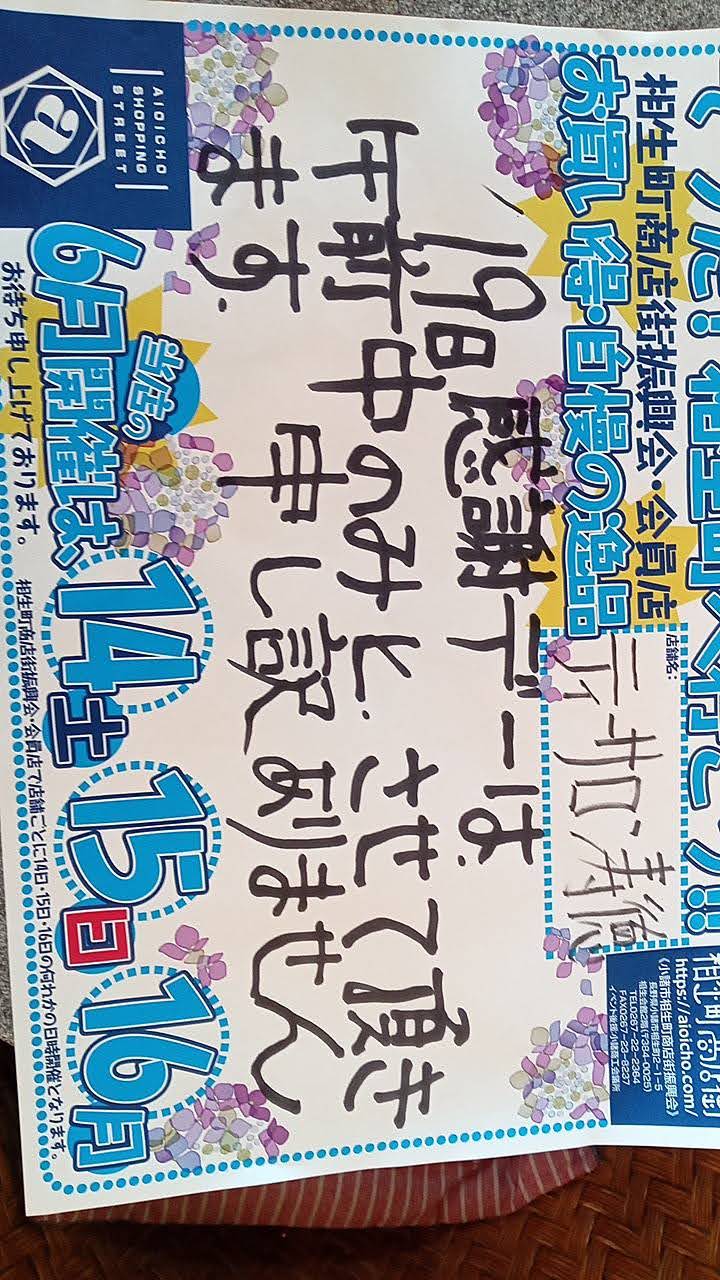 相生町へ行こう!!
相生町商店街振興会・会員店
お買い得・自慢の逸品
店舗名:
https://aioicho.com/
《小諸市相生町商店街振興会》
長野県小諸市相生町2-1-5
相生会館2階(〒384-0025)
TEL0267-22-2364
FAX0267-23-8237
イベント後援/小諸商工会議所
19日感謝デーは、
午前中のみと、させて頂き
ます。申し訳ありません
AIOICHO
SHOPPING
STREET
当店の
6月開催は、14土 15日 16月
お待ち申し上げております。
相生町商店街振興会・会員店で店舗ごとに14日・15日・16日の何れかの日時開催となります。